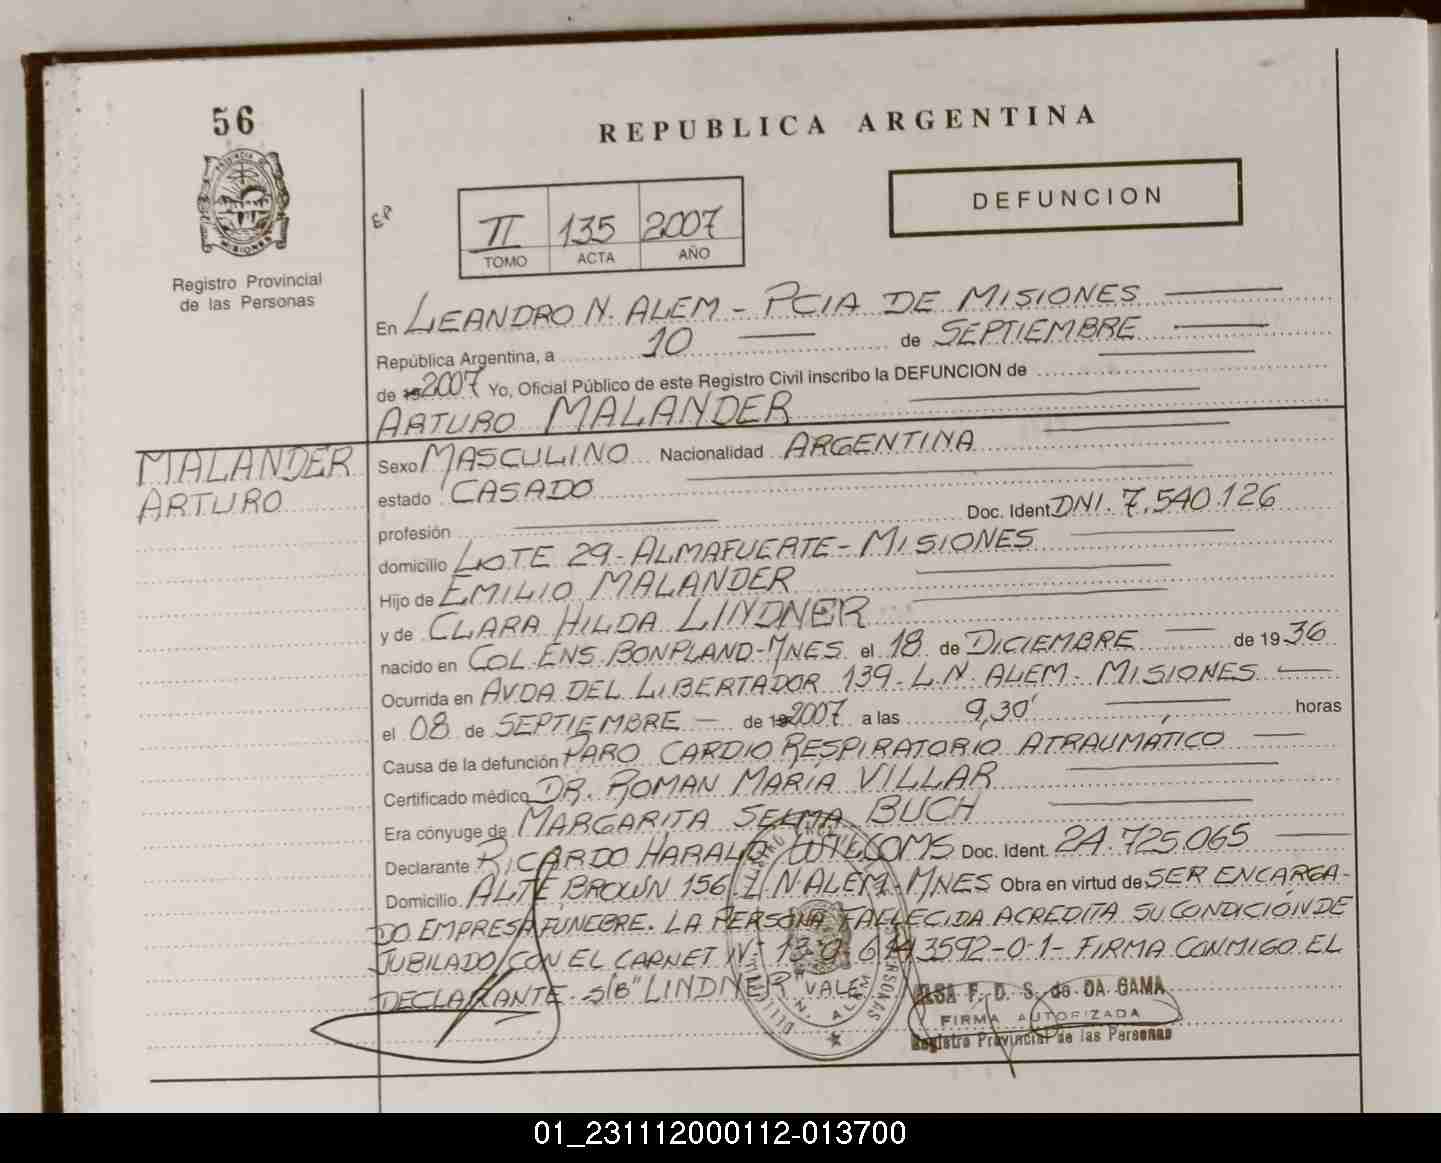 56
REPUBLICA ARGENTINA
DEFUNCION
PROVINCIA DE
MISIONES
Registro Provincial
de las Personas
EP
II 135 2007
TOMO ACTA AÑO
En LEANDRO N. ALEM - PCIA DE MISIONES
República Argentina, a 10 de SEPTIEMBRE
de 19 2007 Yo, Oficial Público de este Registro Civil inscribo la DEFUNCION de
ARTURO MALANDER
MALANDER
ARTURO
Sexo MASCULINO Nacionalidad ARGENTINA
estado CASADO
profesión Doc. Ident. DNI. 7.540.126
domicilio LOTE 29 - ALMAFUERTE - MISIONES
Hijo de EMILIO MALANDER
y de CLARA HILDA LINDNER
nacido en COL. ENS. BONPLAND - MNES el 18 de DICIEMBRE de 1936
Ocurrida en AVDA DEL LIBERTADOR 139 - L.N. ALEM - MISIONES
el 08 de SEPTIEMBRE de 19 2007 a las 9,30' horas
Causa de la defunción PARO CARDIO RESPIRATORIO ATRAUMÁTICO
Certificado médico DR. ROMAN MARIA VILLAR
Era cónyuge de MARGARITA SELMA BUCH
Declarante RICARDO HARALD Doc. Ident. 24.725.065
Domicilio ALTE BROWN 156 L N ALEM - MNES Obra en virtud de SER ENCARGA-
DO EMPRESA FUNEBRE. LA PERSONA FALLECIDA ACREDITA SU CONDICIÓN DE
JUBILADO CON EL CARNET Nº 13-0-6143592-0-1- FIRMA CONMIGO EL
DECLARANTE s/b "LINDNER" VALE
N. ALEM
ELSA F. D. S. de DA GAMA
FIRMA AUTORIZADA
Registro Provincial de las Personas
01_231112000112-013700